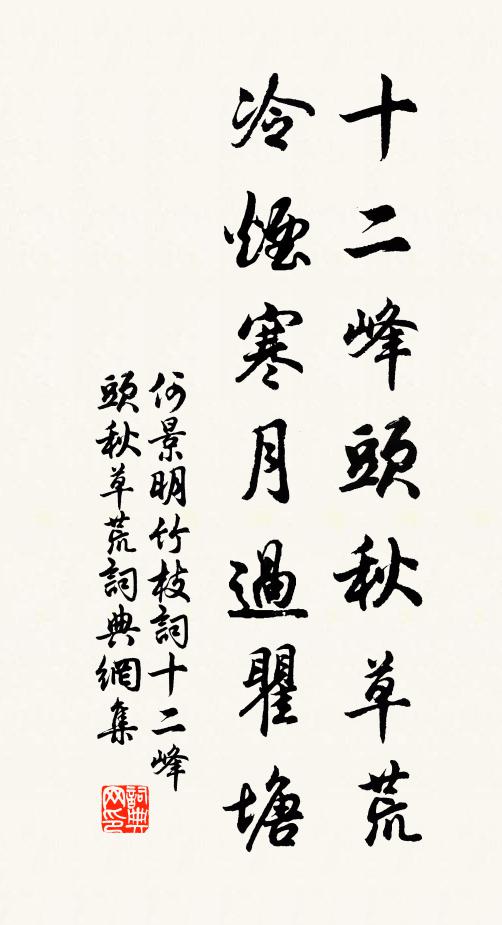 十二峰頭秋草荒
冷煙寒月過瞿塘
何景明竹枝詞十二峰
頭秋草荒詞典網集
詞典
网印